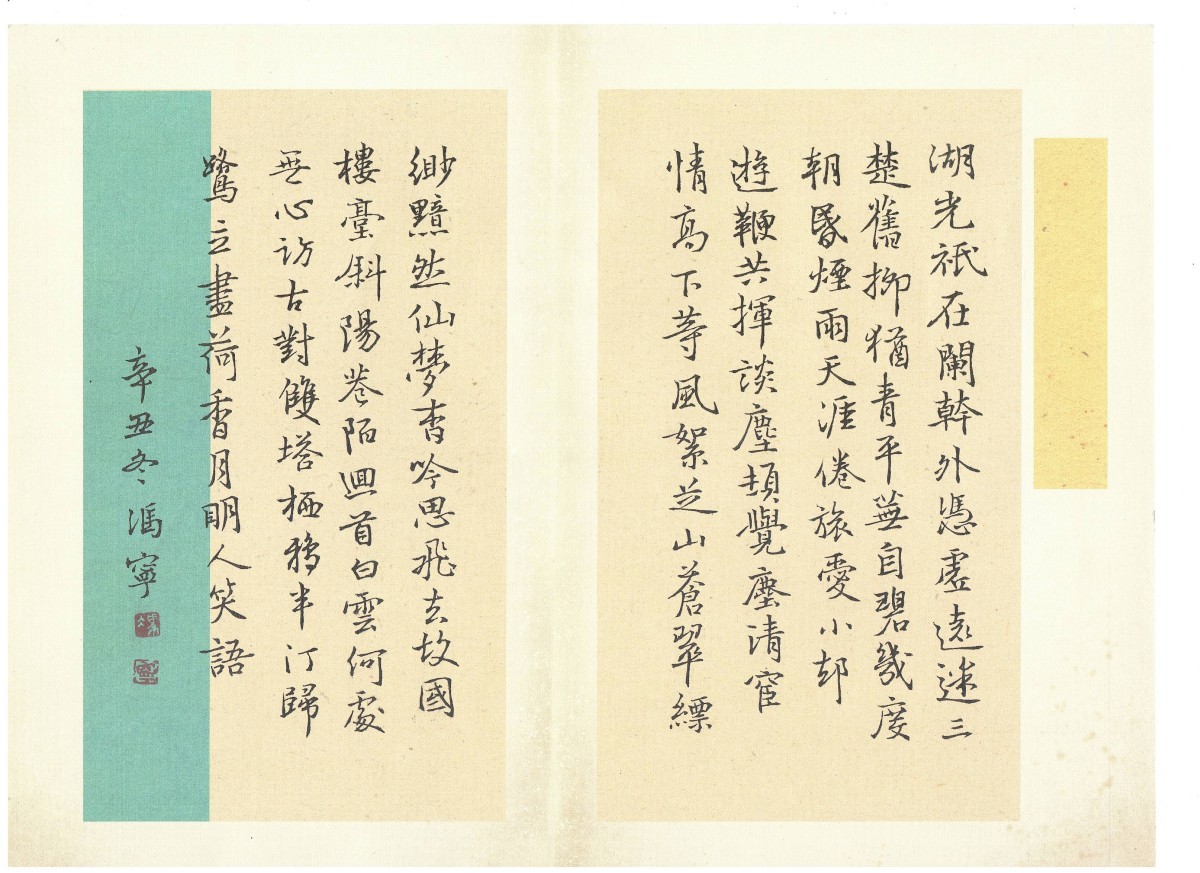 湖光祇在闌幹外憑虛遠迷三
楚舊柳猶青平蕪自碧幾度
朝昏煙雨天涯倦旅愛小却
遊鞭共揮談麈頓覺塵清宦
情高下等風絮芝山蒼翠縹
緲黯然仙夢杳吟思飛去故國
樓臺斜陽巷陌回首白雲何處
無心訪古對雙塔栖鴉半汀歸
鷺立盡荷香月明人笑語
辛丑冬馮寧